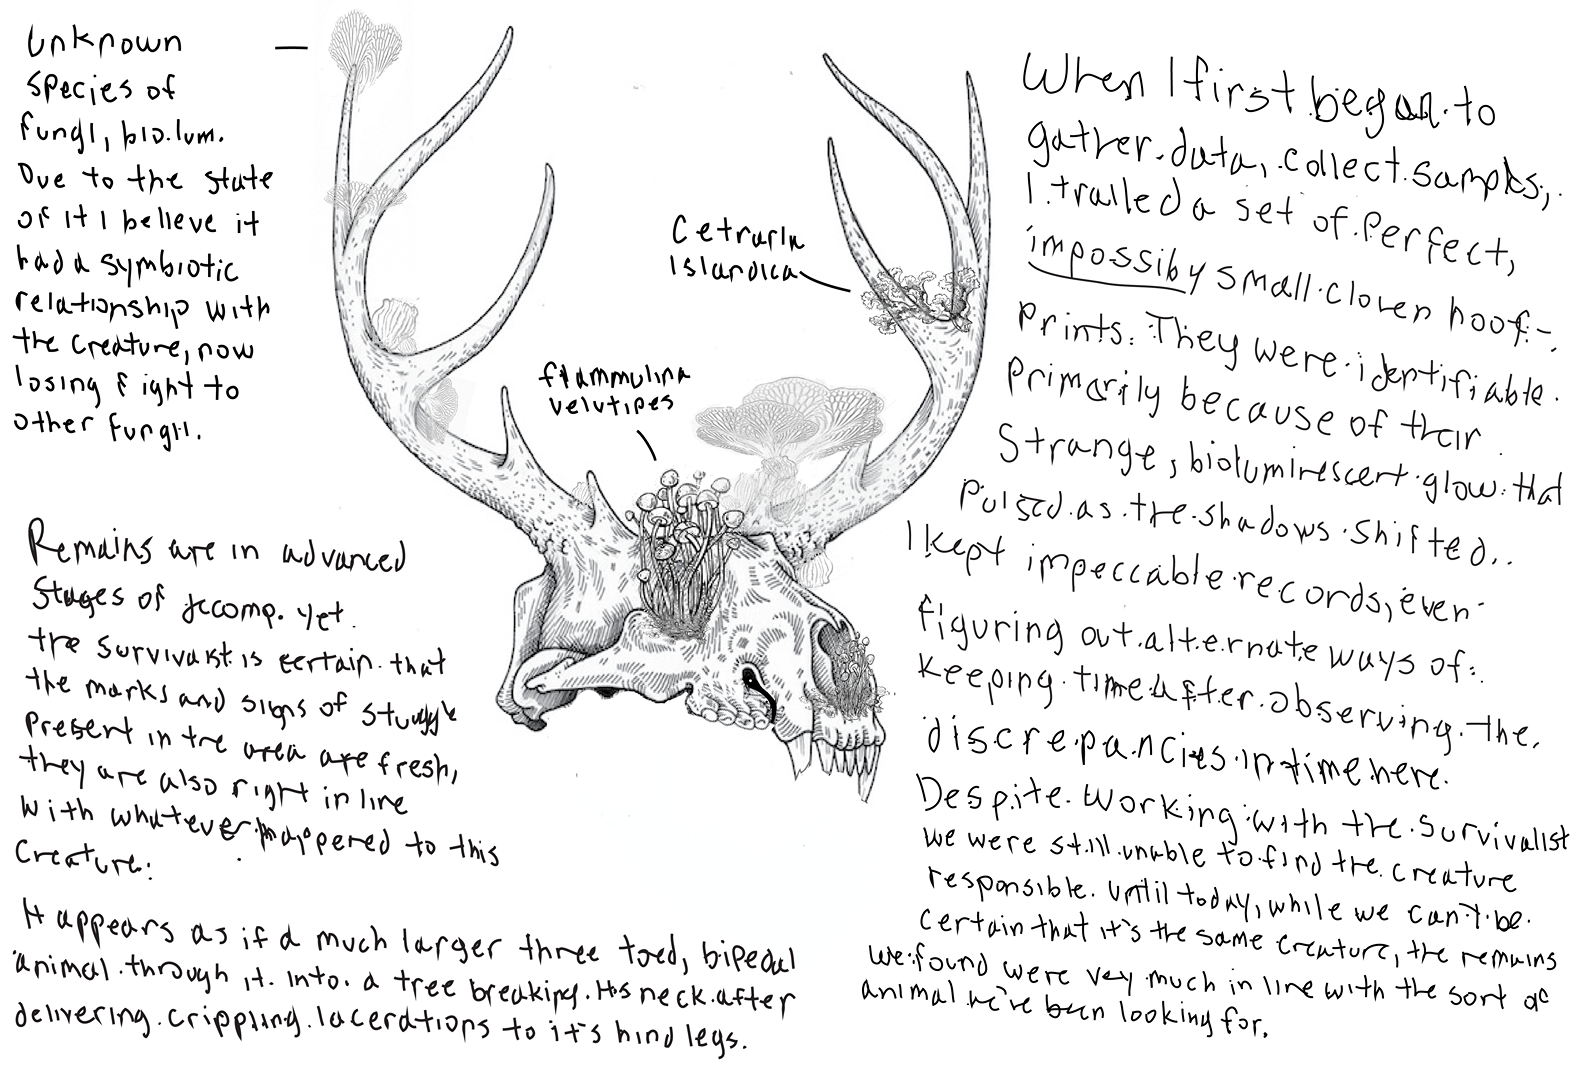 Unknown
species of
fungi, bio.lum.
Due to the state
of it I believe it
had a symbiotic
relationship with
the creature, now
losing fight to
other fungii.
Cetraria
Islandica
flammulina
velutipes
Remains are in advanced
stages of decomp. yet
the survivalist is certain that
the marks and signs of struggle
present in the area are fresh,
they are also right in line
with whatever happered to this
creature.
It appears as if a much larger three toed, bipedal
animal through it into a tree breaking its neck after
delivering crippling lacerations to it's hind legs.
When I first began to
gather data, collect samples,
I trailed a set of perfect,
impossiby small cloven hoof-
prints. They were identifiable
primarily because of their
strange, bioluminescent glow that
pulsed as the shadows shifted..
I kept impeccable records, even
figuring out alternate ways of
keeping time after observing the
discrepancies in time here.
Despite working with the survivalist
we were still unable to find the creature
responsible. Until today, while we can't be
certain that it's the same creature, the remains
we found were very much in line with the sort of
animal we've been looking for.